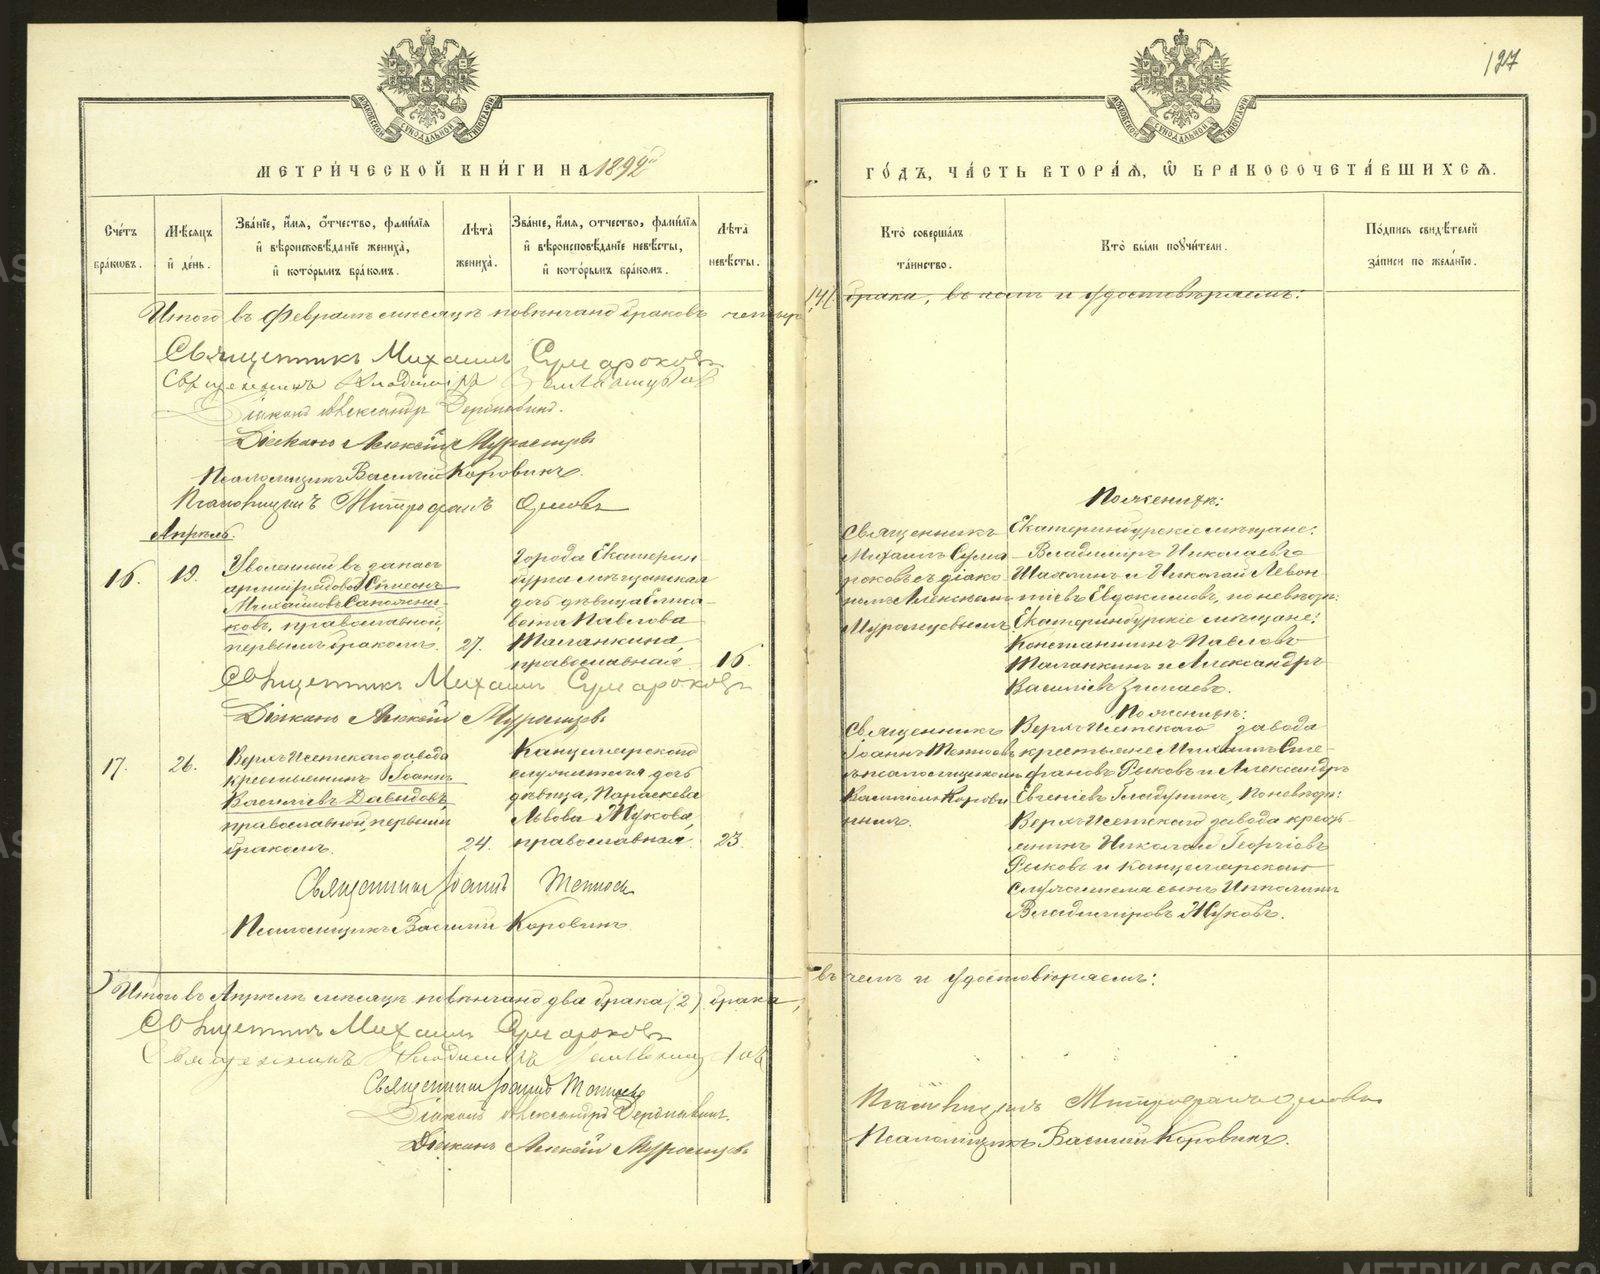 127
МОСКОВСКОЙ СѴНОДАЛЬНОЙ ТИПОГРАФІИ
МОСКОВСКОЙ СѴНОДАЛЬНОЙ ТИПОГРАФІИ
МЕТРИ́ЧЕСКОЙ КНИ́ГИ НА 1892й
ГО́ДЪ, ЧА́СТЬ ВТОРА́Я, Ѡ҆ БРАКОСОЧЕТА́ВШИХСЯ.
Сче́тъ
бра́кѡвъ.
Мѣ́сяцъ
и҆ де́нь.
Зва́нїе, и҆́мя, ѻ҆́тчество, фами́лїя
и҆ вѣроисповѣ́данїе жениха̀,
и҆ кото́рымъ бра́комъ.
Лѣта̀
жениха̀.
Зва́нїе, и҆́мя, ѻ҆́тчество, фами́лїя
и҆ вѣроисповѣ́данїе невѣ́сты,
и҆ кото́рымъ бра́комъ.
Лѣта̀
невѣ́сты.
Кто̀ соверша́лъ
та́инство.
Кто̀ бы́ли поручи́тели.
По́дпись свидѣ́телей
за́писи по жела́нїю.
Итого въ Февралѣ мѣсяцѣ повѣнчано браковъ четыре
(4) брака, въ чемъ и удостовѣряемъ:
Священникъ Михаилъ Сумароковъ
Священникъ Владиміръ
Діаконъ Александръ Державинъ.
Діаконъ Алексѣй Мурамцевъ
Псаломщикъ Василій Коровинъ.
Псаломщикъ Митрофанъ
Апрѣль.
16.
19.
Уволенный въ запасъ
арміи рядовой
Михайловъ Сапожни-
ковъ, православный,
первымъ бракомъ.
27.
Города Екатерин-
бурга мѣщанская
дочь дѣвица Елиса-
вета Павлова
Таланкина,
православная.
16.
Священникъ
Михаилъ Сума-
роковъ съ діако-
номъ Алексѣемъ
Мурамцевымъ
По женихѣ:
Екатеринбургскіе мѣщане:
Владиміръ Николаевъ
и Николай Леон-
тіевъ Евдокимовъ, по невѣстѣ:
Екатеринбургскіе мѣщане:
Константинъ Павловъ
Таланкинъ и Александръ
Василіевъ
Священникъ Михаилъ Сумароковъ
Діаконъ Алексѣй Мурамцевъ
17.
26.
Верхъ-Исетскаго завода
крестьянинъ Іоаннъ
Василіевъ Давыдовъ
православный, первымъ
бракомъ.
24.
Канцелярскаго
служителя дочь
дѣвица, Параскева
Львова Жукова,
православная.
23.
Священникъ
Іоаннъ
съ псаломщикомъ
Василіемъ Корови-
нымъ.
По женихѣ:
Верхъ-Исетскаго завода
крестьяне Михаилъ Сте-
фановъ Рыковъ и Александръ
Евгеніевъ Гладунинъ, по невѣстѣ:
Верхъ-Исетскаго завода кресть-
янинъ Николай Георгіевъ
Рыковъ и канцелярскаго
служителя сынъ Ипполитъ
Владиміровъ Жуковъ.
Священникъ Іоаннъ
Псаломщикъ Василій Коровинъ.
Итого въ Апрѣлѣ мѣсяцѣ повѣнчано два брака (2) брака,
въ чемъ и удостовѣряемъ:
Священникъ Михаилъ Сумароковъ
Священникъ Владиміръ
Священникъ Іоаннъ
Діаконъ Александръ Державинъ.
Діаконъ Алексѣй Мурамцевъ
Псаломщикъ Митрофанъ
Псаломщикъ Василій Коровинъ.
METRIKI.GASO-URAL.RU